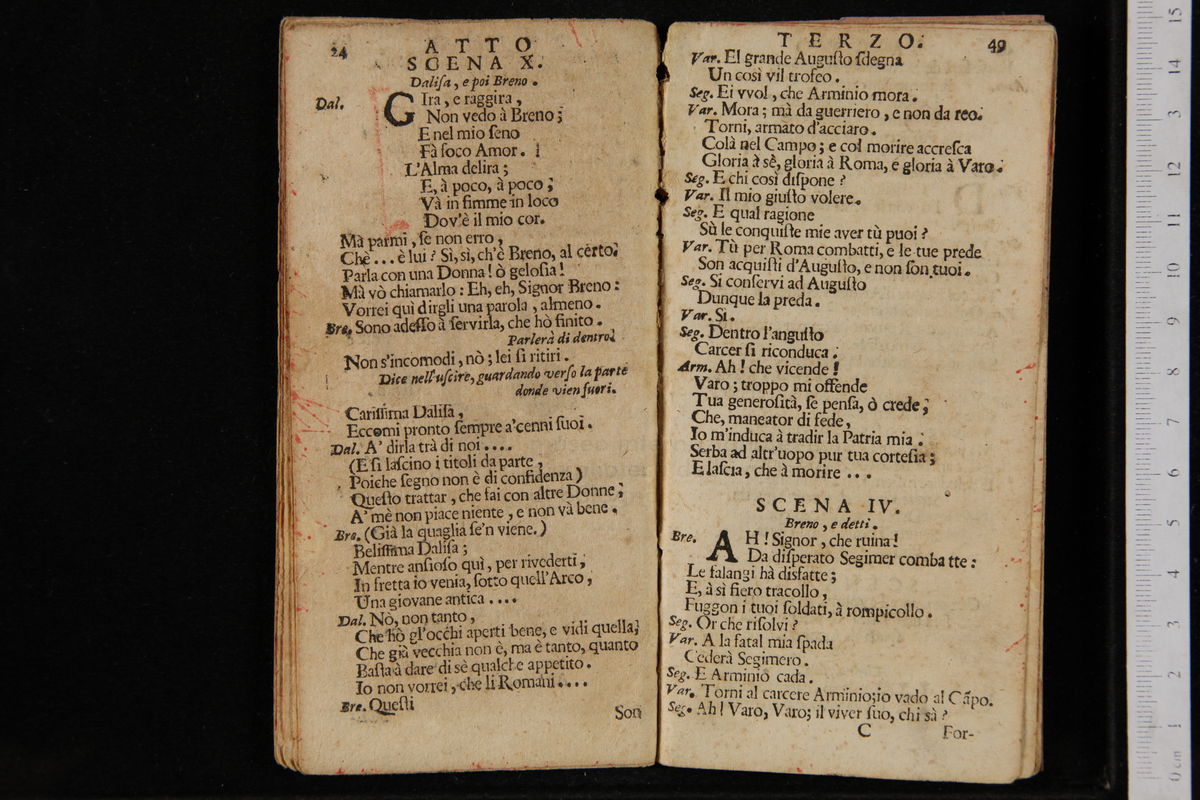 24
ATTO
SCENA X.
Daliſa, e poi Breno.
Dal. GIra, e raggira,
Non vedo à Breno;
E nel mio ſeno
Fà foco Amor.
L'Alma delira;
E, à poco, à poco;
Và in fimme in loco
Dov'è il mio cor.
Mà parmi, ſe non erro,
Che ... è lui? Sì, sì, ch'è Breno, al certo.
Parla con una Donna! ò geloſia!
Mà vò chiamarlo: Eh, eh, Signor Breno:
Vorrei quì dirgli una parola, almeno.
Bre. Sono adeſſo à ſervirla, che hò finito.
Parlerà di dentro.
Non s'incomodi, nò; lei ſi ritiri.
Dice nell'uſcire, guardando verſo la parte
donde vien fuori.
Cariſſima Daliſa,
Eccomi pronto ſempre a'cenni ſuoi.
Dal. A' dirla trà di noi ....
(E ſi laſcino i titoli da parte,
Poiche ſegno non è di confidenza)
Queſto trattar, che fai con altre Donne;
A' mè non piace niente, e non và bene.
Bre. (Già la quaglia ſe'n viene.)
Beliſſima Daliſa;
Mentre anſioſo quì, per rivederti,
In fretta io venia, ſotto quell'Arco,
Una giovane antica ....
Dal. Nò, non tanto,
Che hò gl'occhi aperti bene, e vidi quella;
Che già vecchia non è, ma è tanto, quanto
Baſta à dare di sè qualche appetito.
Io non vorrei, che li Romani ....
Bre. Queſti
Son
TERZO.
49
Var. El grande Auguſto ſdegna
Un così vil trofeo.
Seg. Ei vvol, che Arminio mora.
Var. Mora; mà da guerriero, e non da reo.
Torni, armato d'acciaro.
Colà nel Campo; e col morire accreſca
Gloria à sè, gloria à Roma, e gloria à Varo.
Seg. E chi così diſpone?
Var. Il mio giuſto volere.
Seg. E qual ragione
Sù le conquiſte mie aver tù puoi?
Var. Tù per Roma combatti, e le tue prede
Son acquiſti d'Auguſto, e non ſon tuoi.
Seg. Si conſervi ad Auguſto
Dunque la preda.
Var. Sì.
Seg. Dentro l'anguſto
Carcer ſi riconduca.
Arm. Ah! che vicende!
Varo; troppo mi offende
Tua generoſità, ſe penſa, ò crede;
Che, maneator di fede,
Io m'induca à tradir la Patria mia.
Serba ad altr'uopo pur tua corteſia;
E laſcia, che à morire ...
SCENA IV.
Breno, e detti.
Bre. AH! Signor, che ruina!
Da diſperato Segimer combatte:
Le falangi hà disfatte;
E, à sì fiero tracollo,
Fuggon i tuoi ſoldati, à rompicollo.
Seg. Or che riſolvi?
Var. A la fatal mia ſpada
Cederà Segimero.
Seg. E Arminio cada.
Var. Torni al carcere Arminio;io vado al Cãpo.
Seg. Ah! Varo, Varo; il viver ſuo, chi sà?
C
For-